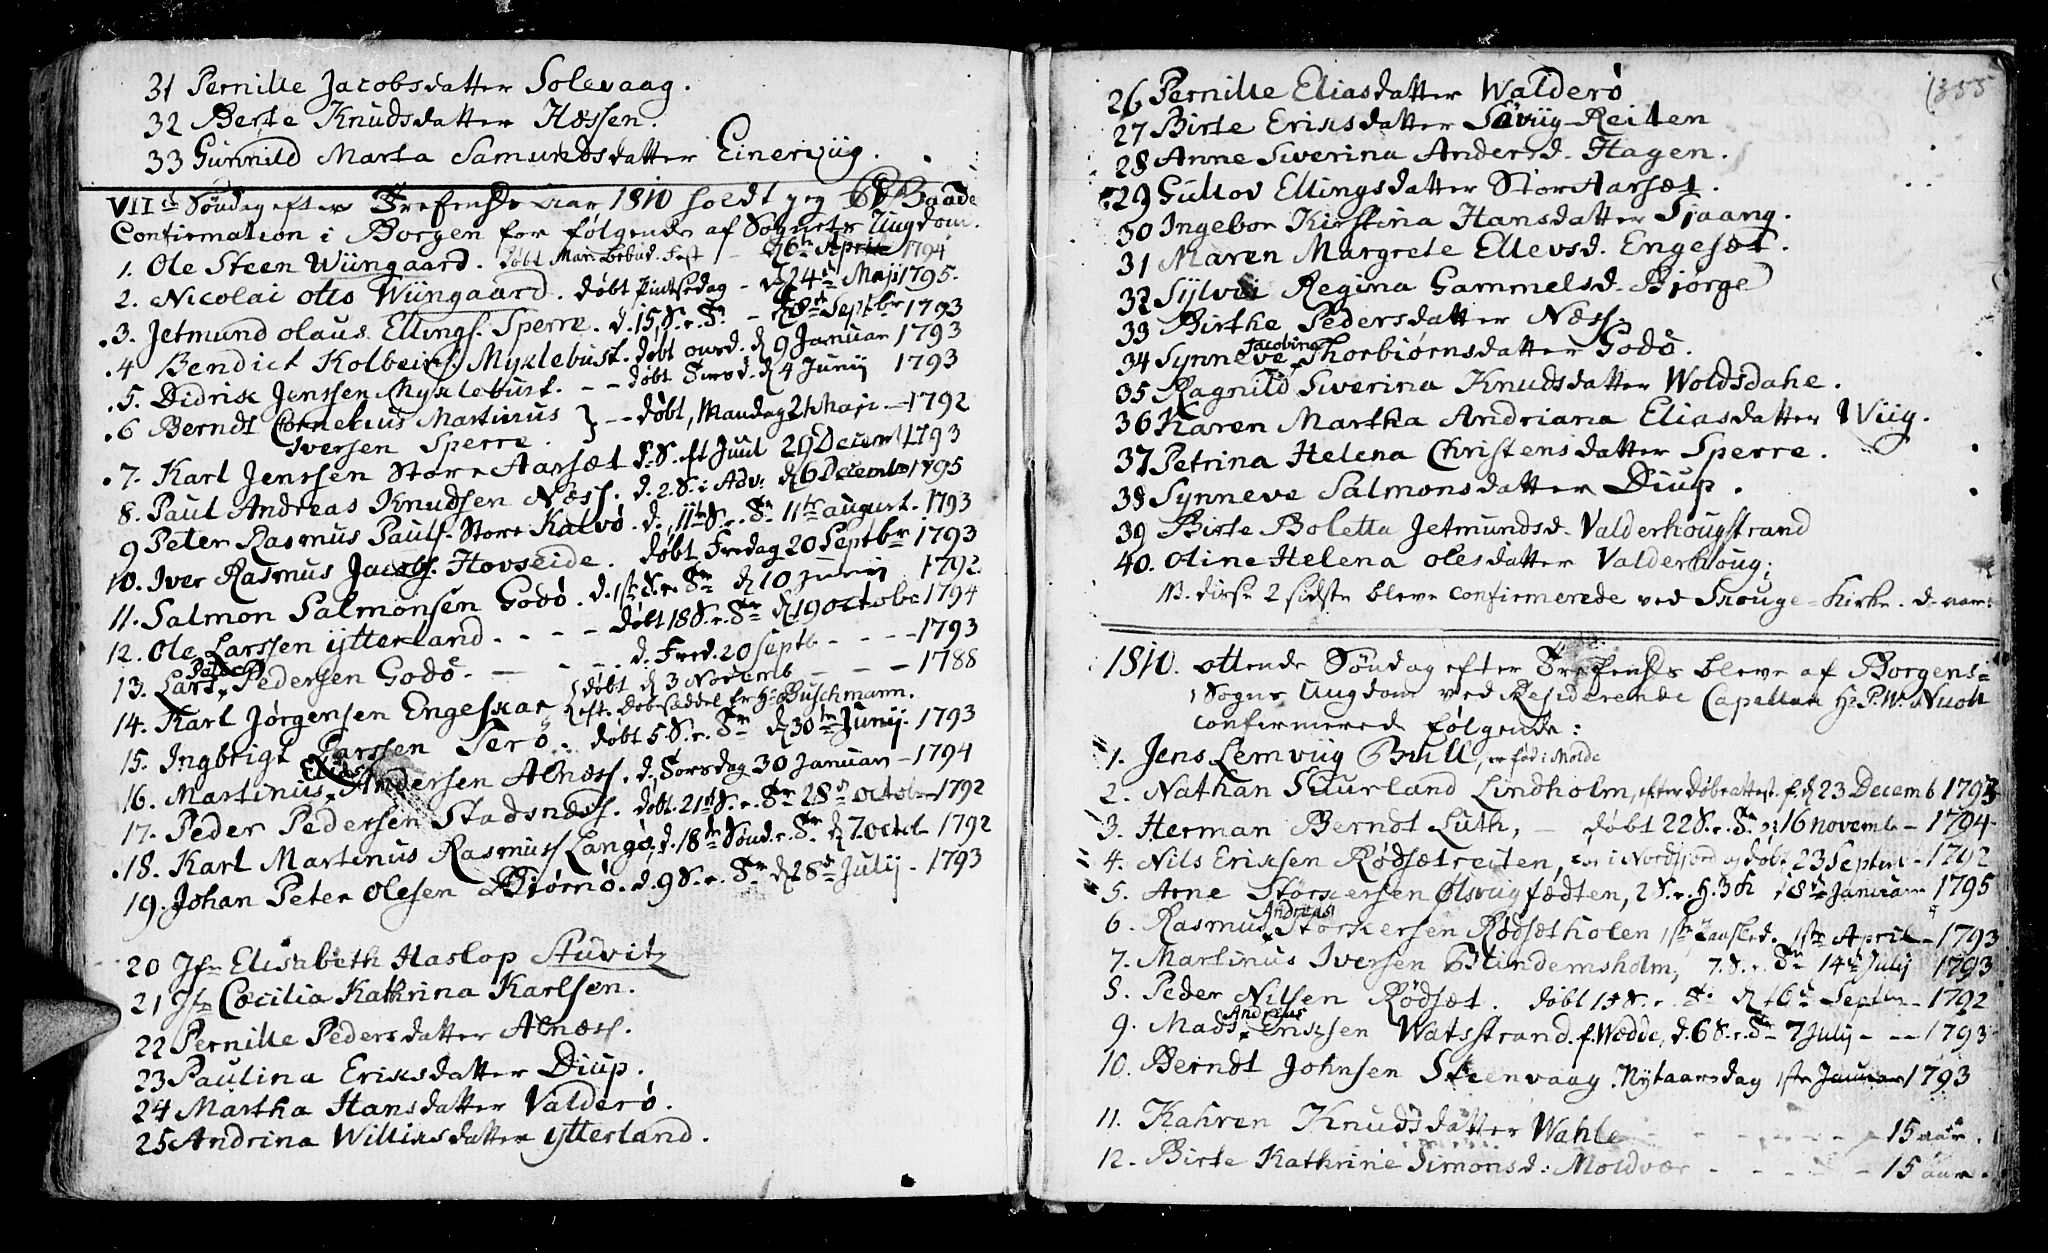 31 Pernille Jacobsdatter Solevaag.
32 Berte Knudsdatter Hessen.
33 Gunnild Marta Samundsdatter Einerviig.
VII de Söndag efter Trefenheds aar 1810 holdt jeg Baade
Confirmation i Borgen for følgende af Sognets Ungdom.
1. Ole Steen Wiingaard. døbt Mari Bebud. Fest - d 6te April 1794
2. Nicolai Otto Wiingaard. døbt Pintsedag - d 24de Maji 1795.
3. Jetmund Olaus Ellings. Sperre. d. 15. S. e. Tr. - d 8de Septbr 1793
4 Bendict Kolbeins. Myklebust. døbt onsd. d 9 Januar 1793
5. Didrik Jenssen Myklebust. - - døbt d 4 Junij 1793
6 Berndt Cornelius Martinus } - - døbt, Mandag Maji - 1792
Iversen Sperre.
7. Karl Jenssen Store Aarsæt d. S. eft Juul 29 Decemb 1793
8. Paul Andreas Knudsen Næss. d. 2. S. i Adv: d 6 Decembr 1795
9 Peter Rasmus Pauls. Store Kalvö. d. 11te S. e. Tr 11te august. 1793
10. Iver Rasmus Jacobs. Hovseide. døbt Fredag 20 Septbr 1793
11. Salmon Salmonsen Godö. d. 1ste S. e. Tr d 10 Junij 1792
12. Ole Larssen Ytterland. - - - - døbt 18 S. e. Tr d 19 octobr 1794
13. Lars Peder Pedersen Godö. - - - - d. Fred. 20 Septb - - - - 1793
14. Karl Jørgensen Engeskar { døbt d 3 Novemb - - - 1788
eft. Døbesæddel fr Hr Buschmann.
15. Ingbrigt Larssen Terö. døbt 5 S. e. Tr d 30te Junij. 1793
16. Martinus Elias Andersen Alnæss. d. Torsdag 30 Januari - 1794
17. Peder Pedersen Stadsnæss. døbt. 21de S. e. Tr 28de octob 1792
18. Karl Martinus Rasmuss Langö, d. 18de Sönd. e. Tr. d 7 octob 1792
19. Johan Peter Olesen Biörnö. d. 9 S. e. Tr d 28de Julij. 1793
20 Jfr Elisabeth Haslop Stuvitz
21 Jfr Cæcilia Kathrina Karlsen.
22 Pernille Pedersdatter Alnæss.
23 Paulina Eriksdatter Diup.
24 Martha Hansdatter Valderö.
25 Andrina Williksdatter Ytterland.
1355
26 Pernille Eliasdatter Walderö
27 Birte Eriksdatter Säviig-Reiten
28 Anne Siverina Andersd. Hagen.
29 Gullov Ellingsdatter Stor Aarsæt.
30 Ingebor Kirstina Hansdatter Sjaang.
31 Maren Margrete Ellevsd. Engesæt.
32 Sylvei Regina Gammelsd. Bjørge
33 Birthe Pedersdatter Næss.
34 Synneve Jacobina Thorbiørnsdatter Godö.
35 Ragnild Siverina Knudsdatter Woldsdahe.
36 Karen Martha Andriana Eliasdatter Wiig.
37 Petrina Helena Christensdatter Sperre.
38 Synneve Salmonsdatter Diup.
39 Birte Boletta Jetmundsd. Valderhougstrand
40. Oline Helena Olesdatter Valderhoug;
NB. disse 2 sidste bleve confirmerede ved Skouge-Kirke.
1810. ottende Söndag efter Trefenheds bleve af Borgens
Sogns Ungdom ved Residerende Capellan Hr P. W.
confirmered følgende:
1. Jens Lemvig Bull, er föd i Molde
2. Nathan Suurland Lindholm, efter døbeattest. f. d 23 Decemb 1793
3. Herman Berndt Luth, - døbt 22 S. e. Tr 16 novemb - 1794
4. Nils Eriksen Rødsætreiten, er i Nordfiord døbt 23 Septbr - 1792
5. Arne Storkersen Ølsvig födten, 2 S. e. H. 3 K 18de Januar 1795
6. Rasmus Andreas Storkersen Rødsætholen 1ste Paasked. 1ste April - 1793
7. Martinus Iversen Blindemsholm, 7. S. e. Tr 14de July 1793
8. Peder Nilsen Rødsæt. døbt 15 S. e. Tr d 16de Septbr - 1792
9. Mads Andreas Eriksen Watsstrand. f. Wedde, d. 6 S. e. Tr 7 July - - 1793
10. Berndt Johnsen Steenvaag. Nytaarsdag 1ste Januar 1793
11. Kahren Knudsdatter Wahle - - - - - 15 aar.
12. Birte Kathrine Simonsd: Moldvær - - - - 15 aar.